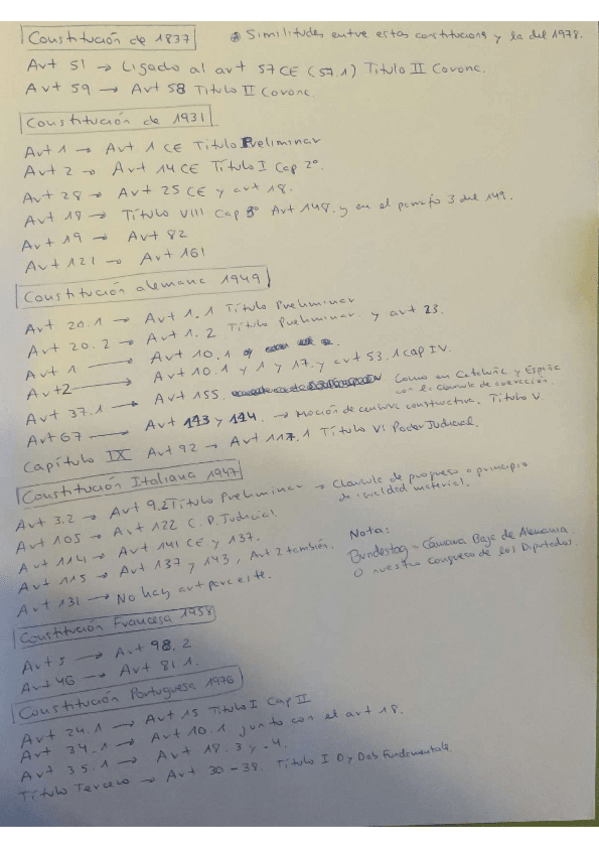 Constitución de 1837
* Similitudes entre estas constitucions y la del 1978.
Art 51 → Ligado al art 57 CE (57.1) Título II Corona.
Art 59 → Art 58 Título II Corona.
Constitución de 1931
Art 1 → Art 1 CE Título Preliminar
Art 2 → Art 14 CE Título I Cap 2º
Art 28 → Art 25 CE y art 18.
Art 18 → Título VIII Cap 3º Art 148. y en el parrafo 3 del 149.
Art 19 → Art 82
Art 121 → Art 161
Constitución alemana 1949
Art 20.1 → Art 1.1 Título Preliminar
Art 20.2 → Art 1.2 Título Preliminar y art 23.
Art 1 → Art 10.1
Art 2 → Art 10.1 y 17. y art 53.1 cap IV.
Art 37.1 → Art 155. Como en Cataluña y España con la cláusula de coerción.
Art 67 → Art 113 y 114. → Moción de censura constructiva. Título V.
Capítulo IX Art 92 → Art 117.1 Título VI Poder Judicial.
Constitución Italiana 1947
Art 3.2 → Art 9.2 Título Preliminar → Claúsula de progreso o principio de igualdad material.
Art 105 → Art 122 C.P. Judicial.
Art 114 → Art 141 CE y 137.
Art 115 → Art 137 y 143, Art 2 también.
Art 131 → No hay art para este.
Nota:
Bundestag - Cámara Baja de Alemania
O nuestro congreso de los Diputados.
Constitución Francesa 1958
Art 5 → Art 98.2
Art 46 → Art 81 1.
Constitución Portuguesa 1976
Art 24.1 → Art 15 Título I Cap II
Art 34.1 → Art 10.1 junto con el art 18.
Art 35.1 → Art 18.3 y -4.
Título Tercero → Art 30-38. Título I D y Deb Fundamentales